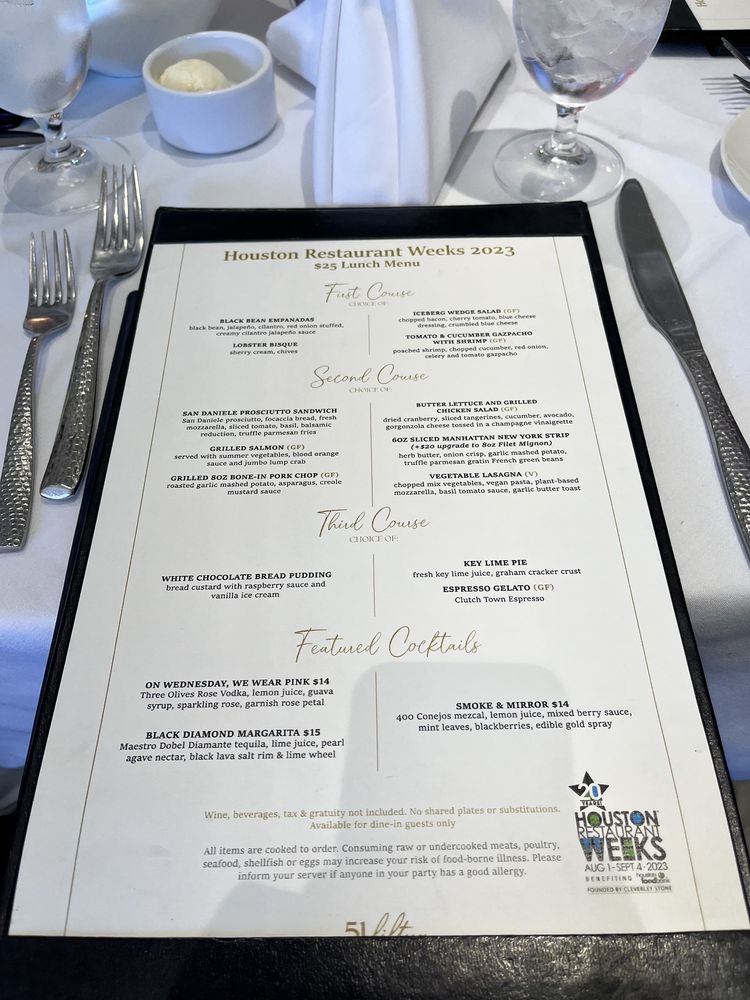 Houston Restaurant Weeks 2023
$25 Lunch Menu
First Course
CHOICE OF:
BLACK BEAN EMPANADAS
black bean, jalapeño, cilantro, red onion stuffed,
creamy cilantro jalapeño sauce
LOBSTER BISQUE
sherry cream, chives
ICEBERG WEDGE SALAD (GF)
chopped bacon, cherry tomato, blue cheese
dressing, crumbled blue cheese
TOMATO & CUCUMBER GAZPACHO
WITH SHRIMP (GF)
poached shrimp, chopped cucumber, red onion,
celery and tomato gazpacho
Second Course
CHOICE OF:
SAN DANIELE PROSCIUTTO SANDWICH
San Daniele prosciutto, focaccia bread, fresh
mozzarella, sliced tomato, basil, balsamic
reduction, truffle parmesan fries
GRILLED SALMON (GF)
served with summer vegetables, blood orange
sauce and jumbo lump crab
GRILLED 8OZ BONE-IN PORK CHOP (GF)
roasted garlic mashed potato, asparagus, creole
mustard sauce
BUTTER LETTUCE AND GRILLED
CHICKEN SALAD (GF)
dried cranberry, sliced tangerines, cucumber, avocado,
gorgonzola cheese tossed in a champagne vinaigrette
6OZ SLICED MANHATTAN NEW YORK STRIP
(+$20 upgrade to 8oz Filet Mignon)
herb butter, onion crisp, garlic mashed potato,
truffle parmesan gratin French green beans
VEGETABLE LASAGNA (V)
chopped mix vegetables, vegan pasta, plant-based
mozzarella, basil tomato sauce, garlic butter toast
Third Course
CHOICE OF:
WHITE CHOCOLATE BREAD PUDDING
bread custard with raspberry sauce and
vanilla ice cream
KEY LIME PIE
fresh key lime juice, graham cracker crust
ESPRESSO GELATO (GF)
Clutch Town Espresso
Featured Cocktails
ON WEDNESDAY, WE WEAR PINK $14
Three Olives Rose Vodka, lemon juice, guava
syrup, sparkling rose, garnish rose petal
BLACK DIAMOND MARGARITA $15
Maestro Dobel Diamante tequila, lime juice, pearl
agave nectar, black lava salt rim & lime wheel
SMOKE & MIRROR $14
400 Conejos mezcal, lemon juice, mixed berry sauce,
mint leaves, blackberries, edible gold spray
Wine, beverages, tax & gratuity not included. No shared plates or substitutions.
Available for dine-in guests only
All items are cooked to order. Consuming raw or undercooked meats, poultry,
seafood, shellfish or eggs may increase your risk of food-borne illness. Please
inform your server if anyone in your party has a good allergy.
20
YEARS!
HOUSTON
RESTAURANT
WEEKS
AUG 1-SEPT 4·2023
BENEFITING houston foodbank
FOUNDED BY CLEVERLEY STONE
51